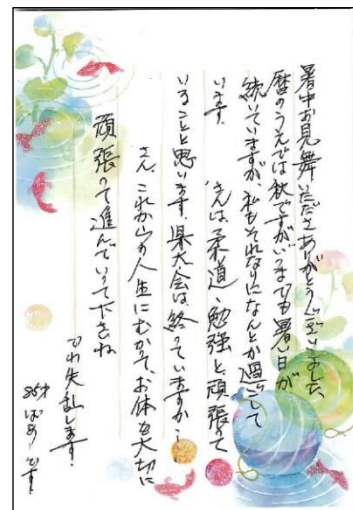 暑中お見舞いただきありがとうございました。
暦のうえでは秋ですがいまでも暑い日が
続いていますが、私もそれなりになんとか過ごして
います。
さんは、柔道、勉強と、頑張って
いることと思います。県大会は終っていますか…
さん、これからの人生にむかって、お体を大切に
頑張って進んでいって下さいね
でわ失礼します。
85才 ばあーです。